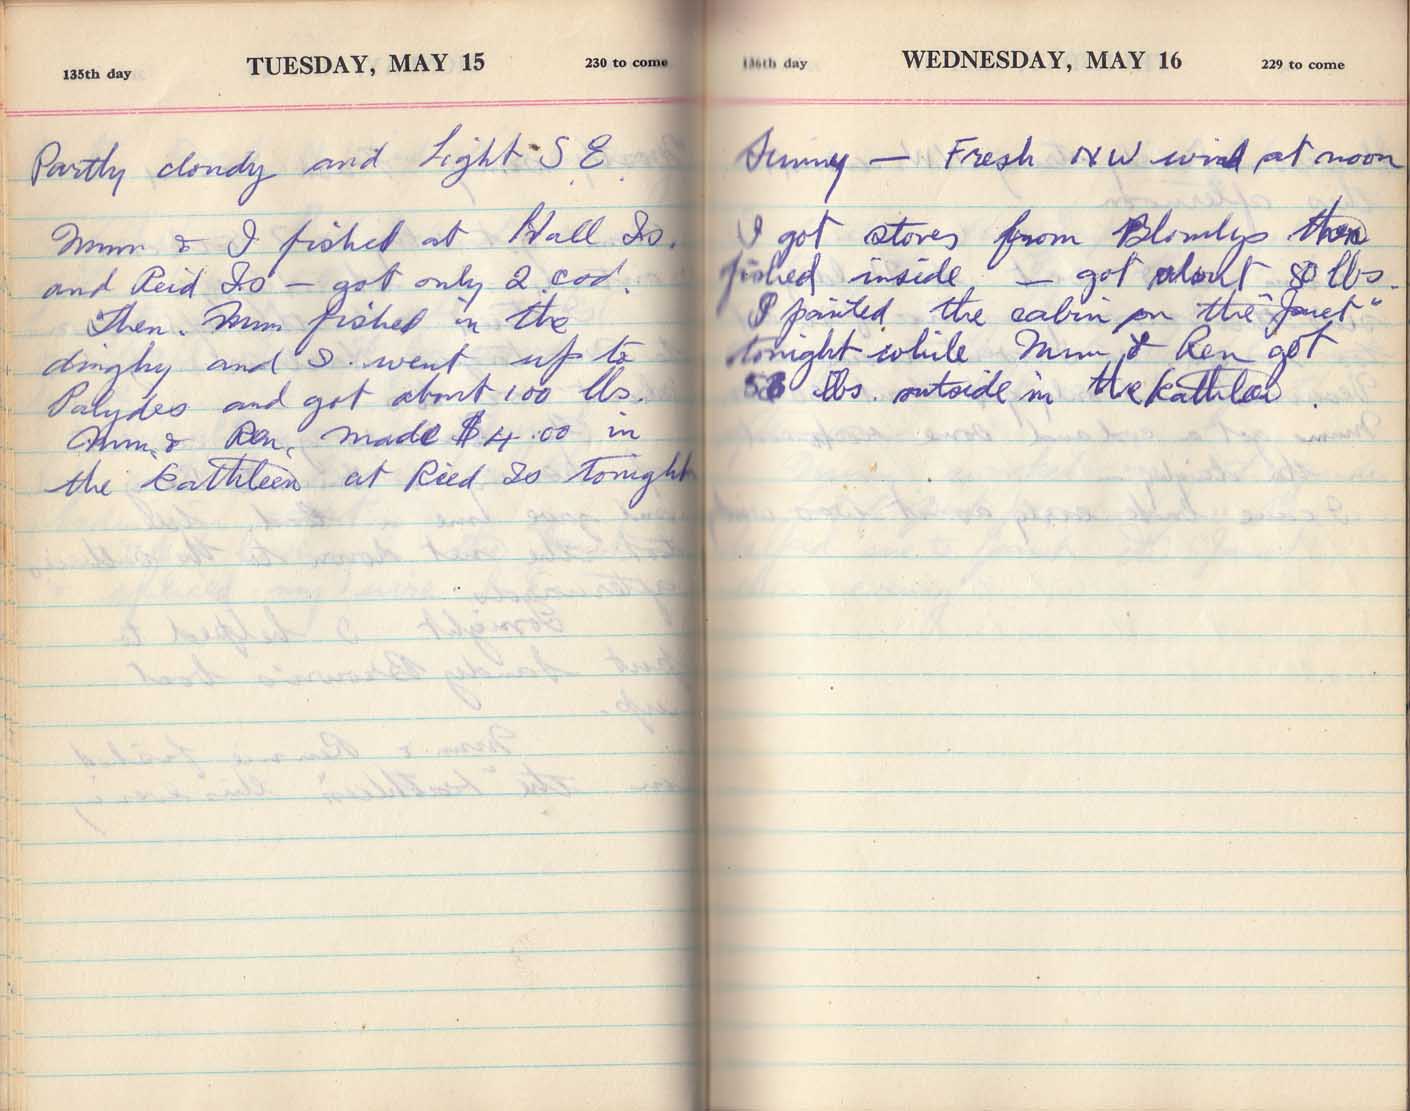 135th day TUESDAY, MAY 15 230 to come
Partly cloudy and Light S E.
Mum & I fished at Hall Is.
and Reid Is — got only 2 cod.
Then Mum fished in the
dinghy and I went up to
and got about 100 lbs.
Mum & Ren made $4.00 in
the Kathleen at Ried Is tonight
136th day WEDNESDAY, MAY 16 229 to come
Sunny — Fresh NW wind at noon
I got stores from then
fished inside — got about 80 lbs.
I painted the cabin on the "Janet"
tonight while Mum & Ren got
lbs. outside in the Kathleen.